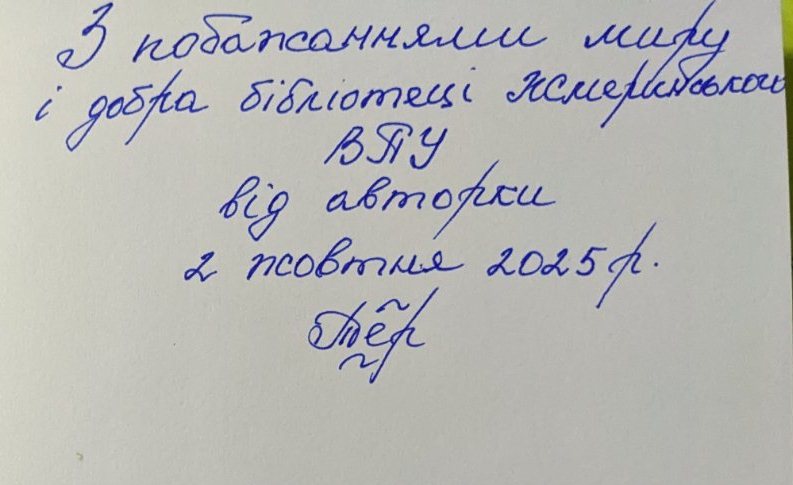 З побажаннями миру
і добра бібліотеці Жмеринського
ВПУ
від авторки
2 жовтня 2025 р.